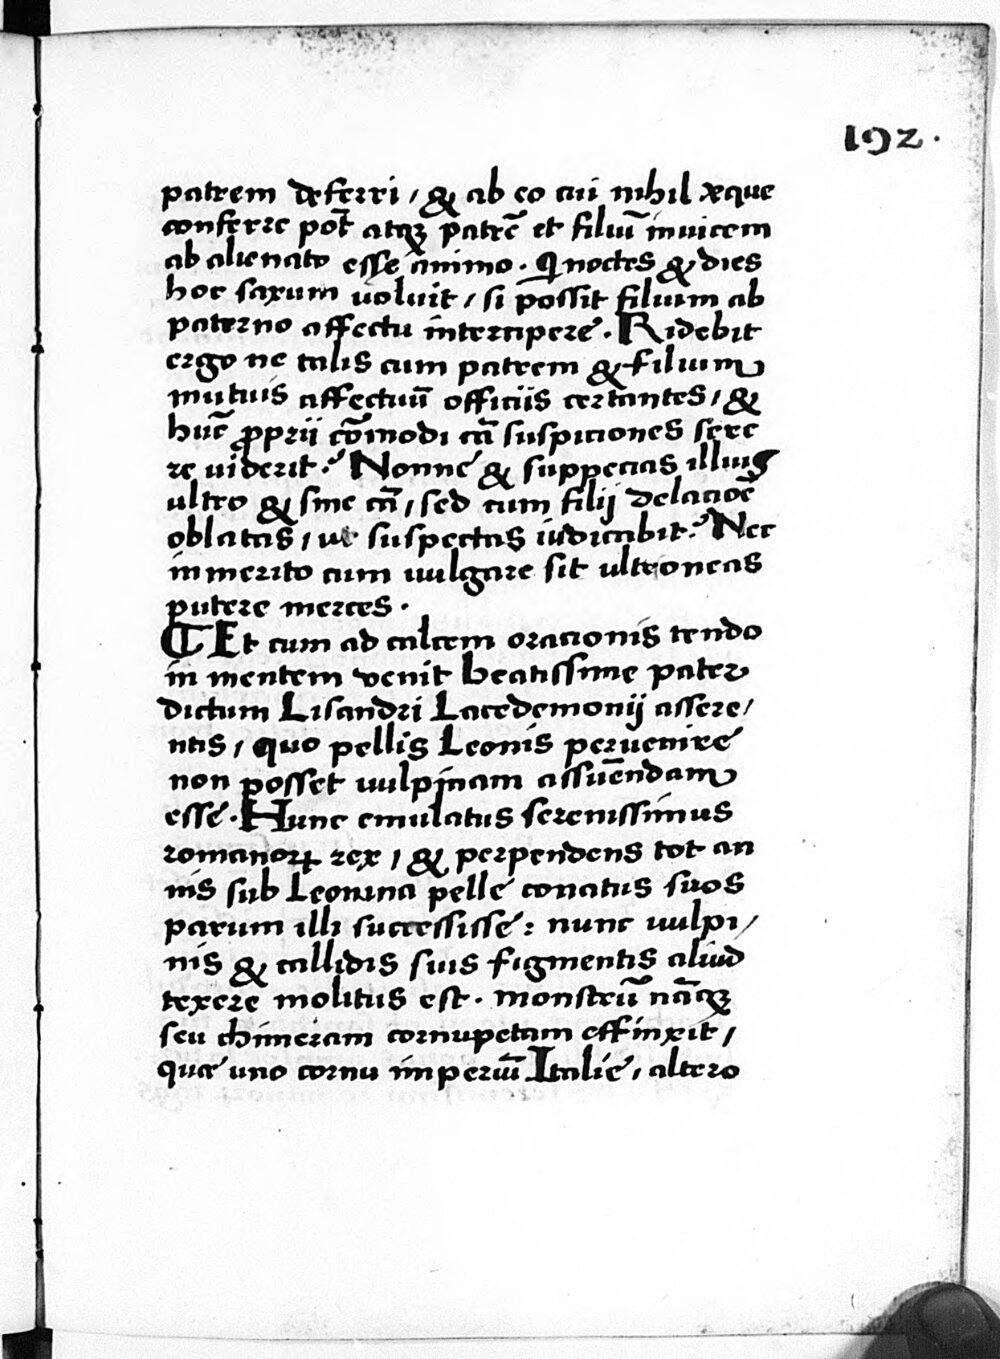 192.
patrem deferri, & ab eo cui nihil æque
conferre pot̄ atqꝫ patrē et filiū inuicem
ab alienato esse animo. Qui noctes & dies
hoc saxum uoluit, si possit filium ab
paterno affectu intercipere. Ridebit
ergo ne talis cum patrem & filium
mutuis affectuū officiis certantes, &
hūc proprii cōmodi cā suspiciones sere
re uiderit? Nonne & suppecias illius
ultro & sine cā, sed cum filij delacioē
oblatas, ut suspectas iudicabit? Nec
inmerito cum uulgare sit ultroneas
putere merces.
Et cum ad calcem oracionis tendo
in mentem venit beatissime pater
dictum Lisandri Lacedemonij assere,
ntis, quo pellis Leonis peruenire
non posset uulpinam assuēndam
esse. Hunc emulatus serenissimus
romanoꝝ rex, & perpendens tot an
nis sub Leonina pelle conatus suos
parum illi successisse: nunc uulpi,
nis & callidis suis figmentis aliud
texere molitus est. monstrū nāqꝫ
seu chimeram cornupetam effinxit,
quæ uno cornu imperiū Italie, altero